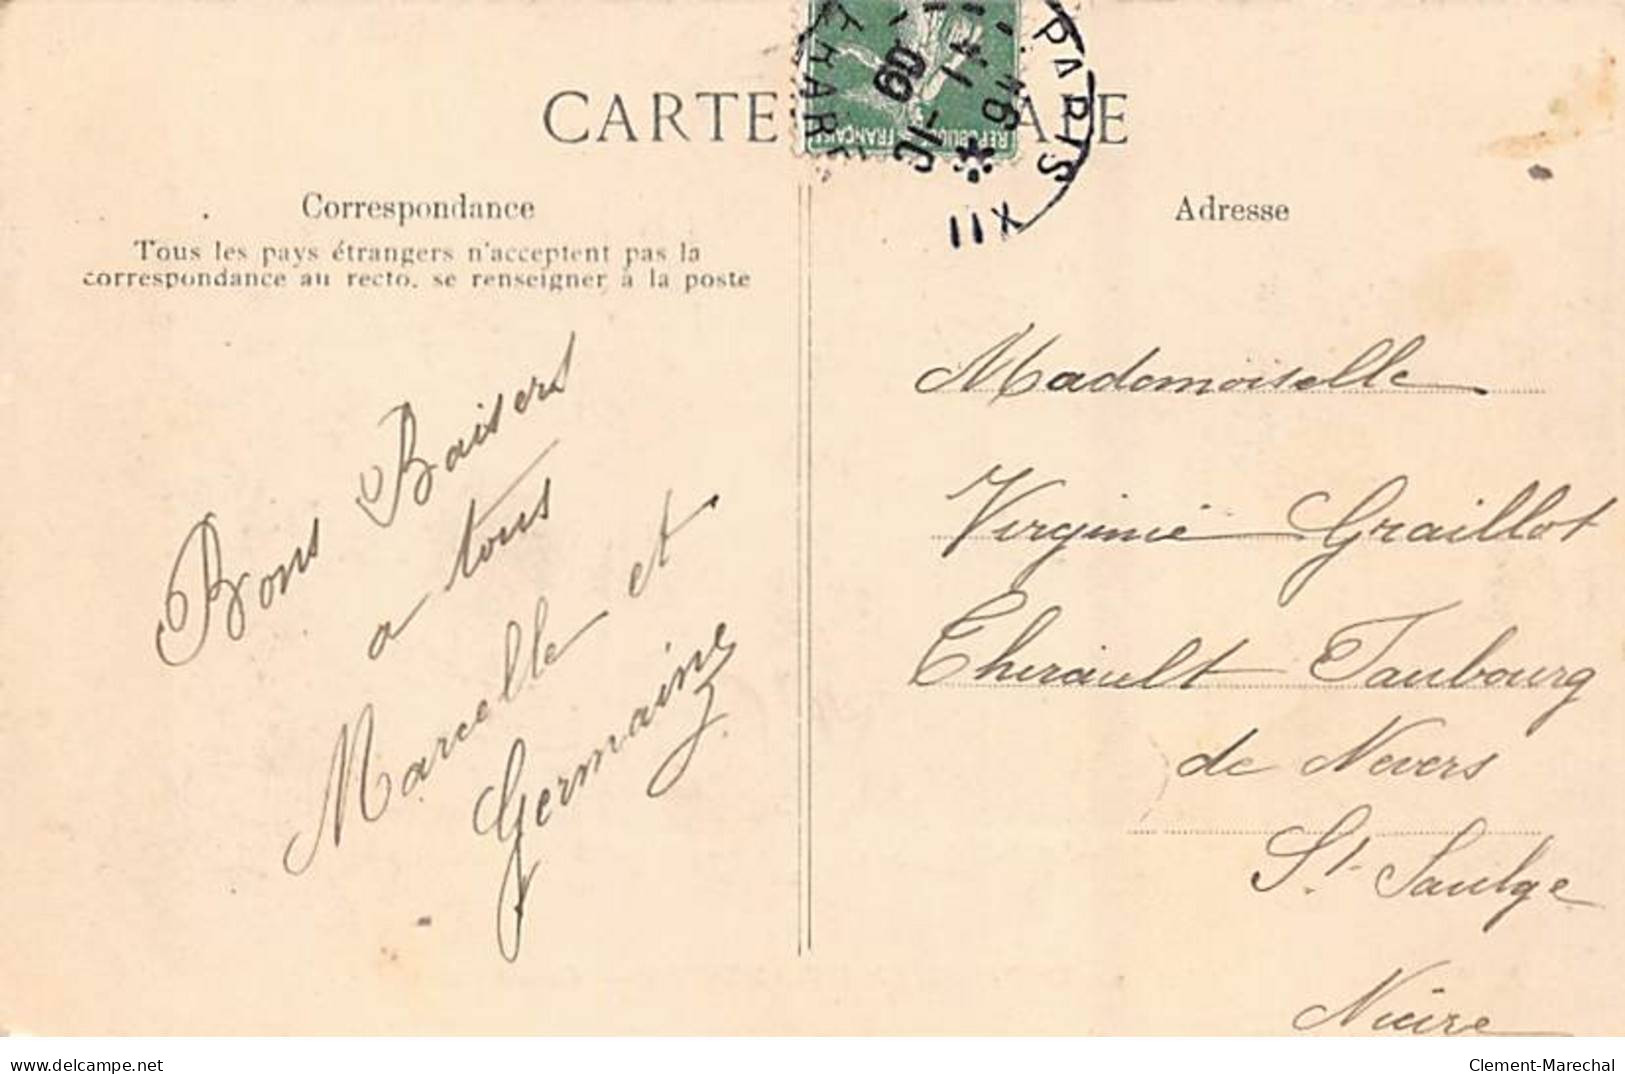 CARTE
ALE
RÉPUBLIQUE FRANÇAISE
PARIS
XII
09
Correspondance
Tous les pays étrangers n'acceptent pas la
correspondance au recto, se renseigner à la poste
Bons Baisers
a tous
Marcelle et
Germaine
Adresse
Mademoiselle
Virginie Graillot
Therault Faubourg
de Nevers
St. Saulge
Nièvre
www.delcampe.net
Clement-Marechal